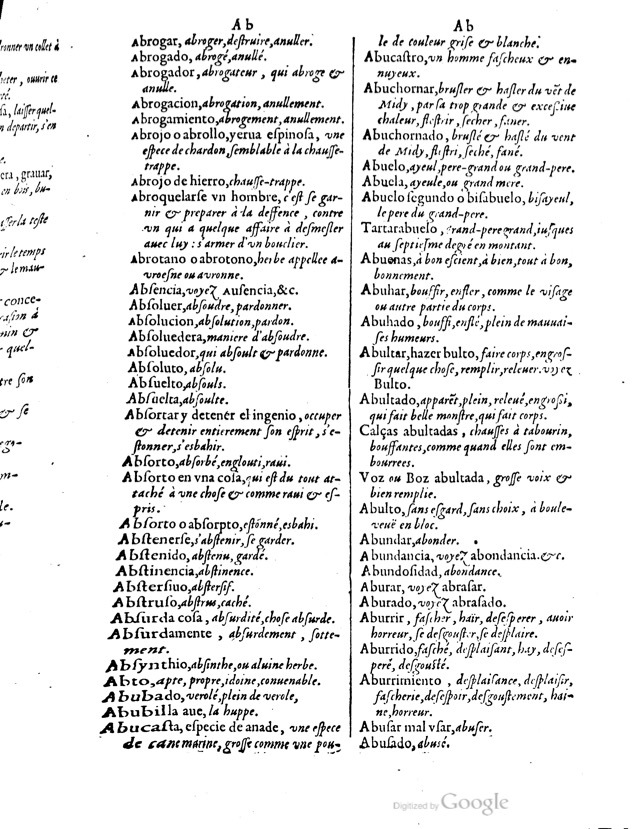 Ab
Abrogar, abroger, destruire, anuller.
Abrogado, abrogé, anullé.
Abrogador, abrogateur, qui abroge &
anulle.
Abrogacion, abrogation, anullement.
Abrogamiento, abrogement, anullement.
Abrojo o abrollo, yerua espinosa, vne
espece de chardon, semblable à la chausse-
trappe.
Abrojo de hierro, chausse-trappe.
Abroquelarse vn hombre, c'est se gar-
nir & preparer à la deffence, contre
vn qui a quelque affaire à desmesler
auec luy: s'armer d'vn bouclier.
Abrotano o abrotono, herbe appellee a-
vroesne ou avronne.
Absencia, voyez Ausencia, &c.
Absoluer, absoudre, pardonner.
Absolucion, absolution, pardon.
Absoluedera, maniere d'absoudre.
Absoluedor, qui absoult & pardonne.
Absoluto, absolu.
Absuelto, absouls.
Absuelta, absoulte.
Absortar y detener el ingenio, occuper
& detenir entierement son esprit, s'e-
stonner, s'esbahir.
Absorto, absorbé, englouti, raui.
Absorto en vna cosa, qui est du tout at-
taché à vne chose & comme raui & es-
pris.
Absorto o absorpto, estonné, esbahi.
Abstenerse, s'abstenir, se garder.
Abstenido, abstenu, gardé.
Abstinencia, abstinence.
Abstersiuo, abstersif.
Abstruso, abstrus, caché.
Absurda cosa, absurdité, chose absurde.
Absurdamente, absurdement, sotte-
ment.
Absynthio, absinthe, ou aluine herbe.
Abto, apte, propre, idoine, conuenable.
Abubado, verolé, plein de verole,
Abubilla aue, la huppe.
Abucasta, especie de anade, vne espece
de cane marine, grosse comme vne pou-
Ab
le de couleur grise & blanche.
Abucastro, vn homme fascheux & en-
nuyeux.
Abuchornar, brusler & hasler du vẽt de
Midy, par sa trop grande & excessiue
chaleur, flestrir, secher, faner.
Abuchornado, bruslé & haslé du vent
de Midy, flestri, seché, fané.
Abuelo, ayeul, pere-grand ou grand-pere.
Abuela, ayeule, ou grand mere.
Abuelo segundo o bisabuelo, bisayeul,
le pere du grand-pere.
Tartarabuelo, grand-pere grand, iusques
au septiesme degré en montant.
Abuenas, à bon escient, à bien, tout à bon,
bonnement.
Abuhar, bouffir, enfler, comme le visage
ou autre partie du corps.
Abuhado, bouffi, enflé, plein de mauuai-
ses humeurs.
Abultar, hazer bulto, faire corps, engros-
sir quelque chose, remplir, releuer. voyez
Bulto.
Abultado, apparẽt, plein, releué, engrossi,
qui fait belle monstre, qui fait corps.
Calças abultadas, chausses à tabourin,
bouffantes, comme quand elles sont em-
bourrees.
Voz ou Boz abultada, grosse voix &
bien remplie.
Abulto, sans esgard, sans choix, à boule-
veuë en bloc.
Abundar, abonder.
Abundancia, voyez abondancia. &c.
Abundosidad, abondance.
Aburar, voyez abrasar.
Aburado, voyez abrasado.
Aburrir, fascher, haïr, desesperer, auoir
horreur, se desgouster, se desplaire.
Aburrido, fasché, desplaisant, hay, deses-
peré, desgousté.
Aburrimiento, desplaisance, desplaisir,
fascherie, desespoir, desgoustement, hai-
ne, horreur.
Abusar mal vsar, abuser.
Abusado, abusé.
Digitized by Google